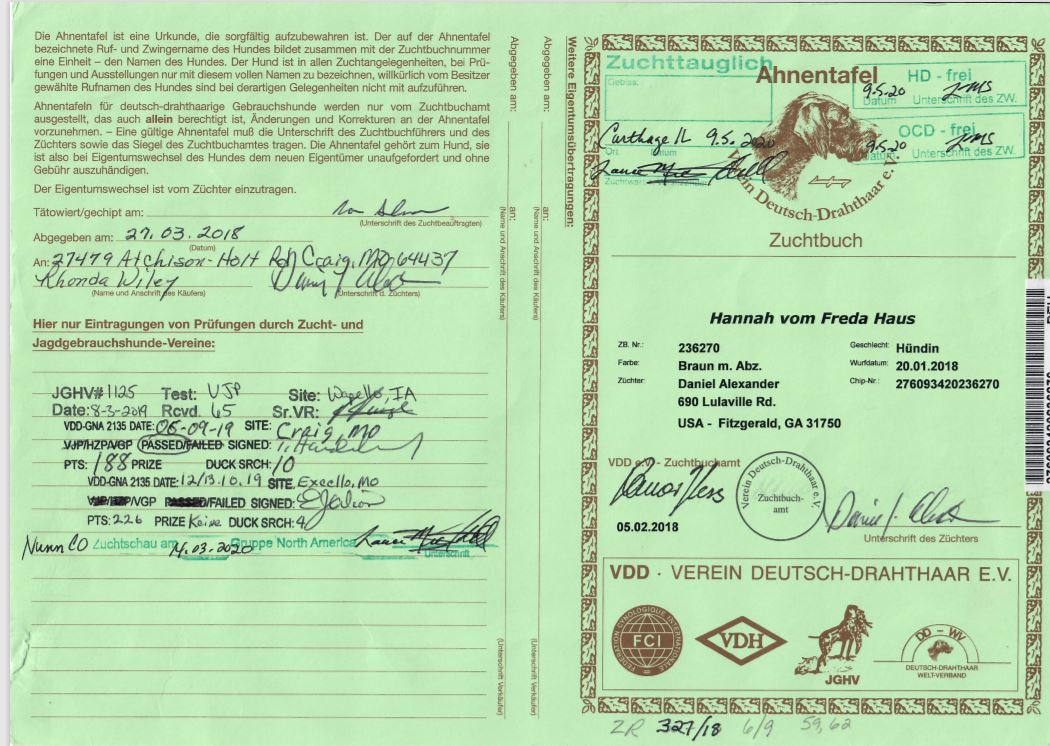 Die Ahnentafel ist eine Urkunde, die sorgfältig aufzubewahren ist. Der auf der Ahnentafel
bezeichnete Ruf- und Zwingername des Hundes bildet zusammen mit der Zuchtbuchnummer
eine Einheit – den Namen des Hundes. Der Hund ist in allen Zuchtangelegenheiten, bei Prü-
fungen und Ausstellungen nur mit diesem vollen Namen zu bezeichnen, willkürlich vom Besitzer
gewählte Rufnamen des Hundes sind bei derartigen Gelegenheiten nicht mit aufzuführen.
Ahnentafeln für deutsch-drahthaarige Gebrauchshunde werden nur vom Zuchtbuchamt
ausgestellt, das auch allein berechtigt ist, Änderungen und Korrekturen an der Ahnentafel
vorzunehmen. – Eine gültige Ahnentafel muß die Unterschrift des Zuchtbuchführers und des
Züchters sowie das Siegel des Zuchtbuchamtes tragen. Die Ahnentafel gehört zum Hund, sie
ist also bei Eigentumswechsel des Hundes dem neuen Eigentümer unaufgefordert und ohne
Gebühr auszuhändigen.
Der Eigentumswechsel ist vom Züchter einzutragen.
Tätowiert/gechipt am:
(Unterschrift des Zuchtbeauftragten)
Abgegeben am: 27.03.2018
(Datum)
An: 27479 Atchison-Holt Rd Craig, MO 64437
Rhonda Wiley
(Name und Anschrift des Käufers) (Unterschrift d. Züchters)
Hier nur Eintragungen von Prüfungen durch Zucht- und
Jagdgebrauchshunde-Vereine:
JGHV# 1125 Test: VJP Site: Wapello, IA
Date: 8-3-2019 Rcvd. 65 Sr.VR:
VDD-GNA 2135 DATE: 06-09-19 SITE: Craig, MO
VJP/HZP/VGP PASSED/FAILED SIGNED:
PTS: 188 PRIZE DUCK SRCH: 10
VDD-GNA 2135 DATE: 12/13.10.19 SITE. Excello, MO
VJP/HZP/VGP PASSED/FAILED SIGNED:
PTS: 226 PRIZE Keine DUCK SRCH: 4
Nunn CO Zuchtschau am 14.03.2020 Gruppe North America
Unterschrift
Abgegeben am:
an:
(Name und Anschrift des Käufers)
(Unterschrift Verkäufer)
Abgegeben am:
an:
(Name und Anschrift des Käufers)
(Unterschrift Verkäufer)
Weitere Eigentumsübertragungen:
Zuchttauglich
Gebiss:
Carthage IL 9.5.2020
Ort Datum
Zuchtwart
Ahnentafel
HD - frei
9.5.20
Datum Unterschrift des ZW.
OCD - frei
9.5.20
Datum Unterschrift des ZW.
Verein Deutsch-Drahthaar e.V.
Zuchtbuch
Hannah vom Freda Haus
ZB. Nr.: 236270 Geschlecht: Hündin
Farbe: Braun m. Abz. Wurfdatum: 20.01.2018
Züchter: Daniel Alexander Chip-Nr.: 276093420236270
690 Lulaville Rd.
USA - Fitzgerald, GA 31750
VDD e.V. - Zuchtbuchamt
Verein Deutsch-Drahthaar e.V.
Zuchtbuch-
amt
05.02.2018
Unterschrift des Züchters
VDD · VEREIN DEUTSCH-DRAHTHAAR E.V.
FEDERATION CYNOLOGIQUE INTERNATIONALE
FCI
VDH
JGHV
DD – WV
DEUTSCH-DRAHTHAAR
WELT-VERBAND
ZR 327/18 6/9 59,62